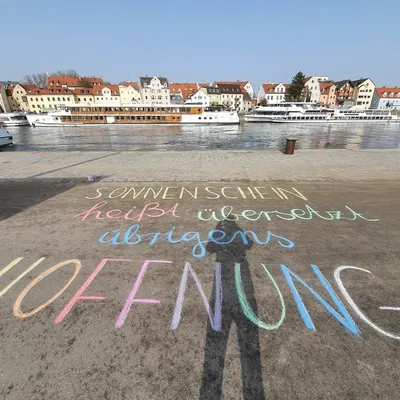 SONNENSCHEIN
heißt übersetzt
übrigens
HOFFNUNG